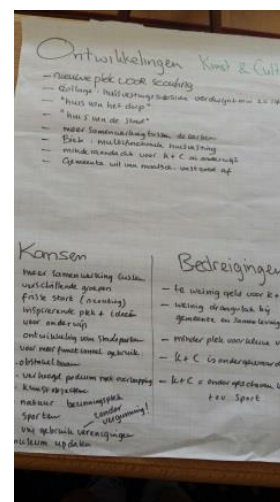 Ontwikkelingen Kunst & Cult
- nieuwe plek voor scouting
- huisvestingssubsidie verdwijnt in
- "huis van het dorp"
- "huis van de stad"
- meer samenwerking tussen
- Bieb: multifunctionele huisvesting
- minder aandacht voor K+C in onderwijs
- Gemeente wil van maatsch. vastgoed af
Kansen
meer samenwerking tussen
verschillende groepen
frisse start (
inspirerende plek + ideeën
voor onderwijs
ontwikkeling van stadsparken
voor meer functioneel gebruik
- verhoogd podium met overkapping
- kunstobjecten
natuur bezinningsplek
sporten zonder
vergunning!
vrij gebruik verenigingen
museum updaten
Bedreigingen
- te weinig geld voor K+
- weinig draagvlak bij
gemeente en samenleving
- minder plek voor kleine v
- K+C is ondergewaardeerd
- K+C = ondergeschoven
t.o.v. sport